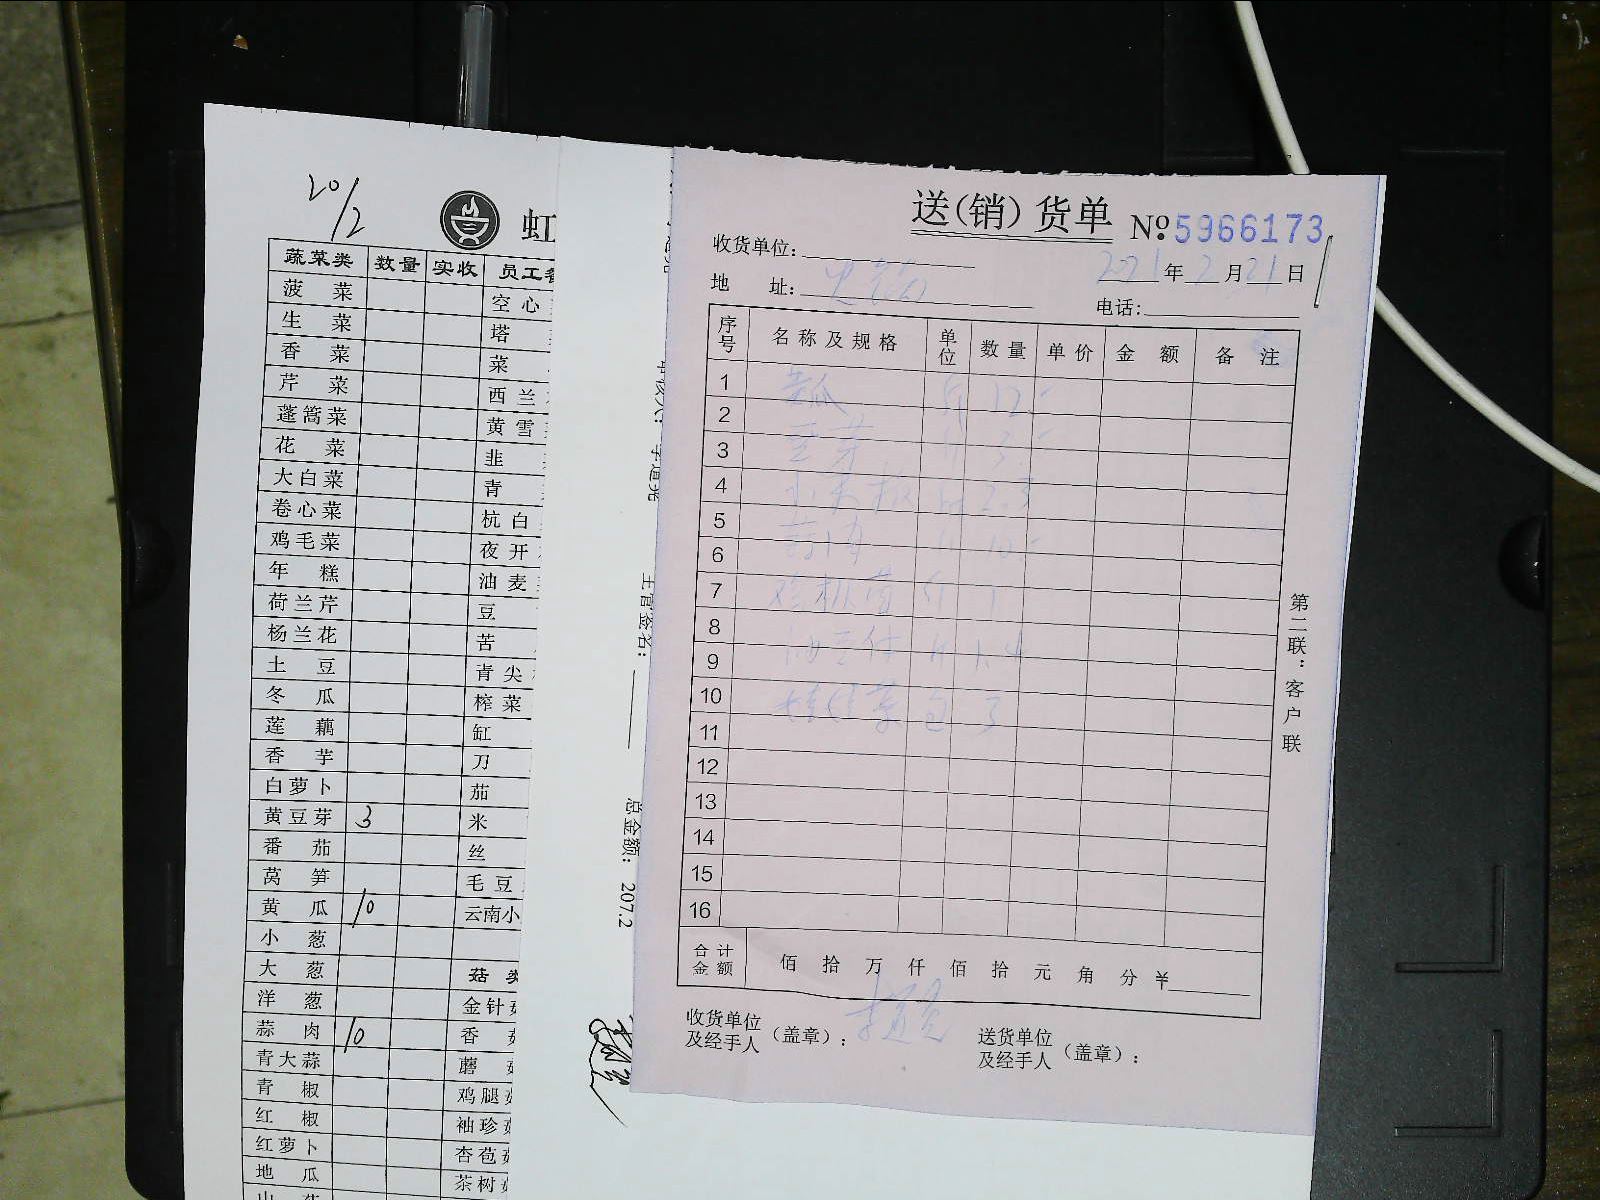 20/2
虹
蔬菜类 数量 实收 员工
菠菜 空心
生菜 塔
香菜 菜
芹菜 西兰
蓬篙菜 黄雪
花菜 韭
大白菜 青
卷心菜 杭白
鸡毛菜 夜开
年糕 油麦
荷兰芹 豆
杨兰花 苦
土豆 青尖
冬瓜 榨菜
莲藕 缸
香芋 刀
白萝卜 茄
黄豆芽 3 米
番茄 丝
莴笋 毛豆
黄瓜 10 云南小
小葱
大葱 菇
洋葱 金针
蒜肉 10 香
青大蒜 蘑
青椒 鸡腿
红椒 袖珍
红萝卜 杏苞
地瓜 茶树
主管签名:
总金额: 207.2
送(销)货单 No 5966173
收货单位:
2021年2月21日
地址:
电话:
序号 名称及规格 单位 数量 单价 金额 备注
1 黄瓜 斤 12.-
2
3 豆芽 3.-
4 2.3
5
6 10.-
7 1
8
9 1.4
10 包 3
11
12
13
14
15
16
合计金额 佰拾万仟佰拾元角分¥
收货单位及经手人(盖章): 李道亮
送货单位及经手人(盖章):
第二联:客户联